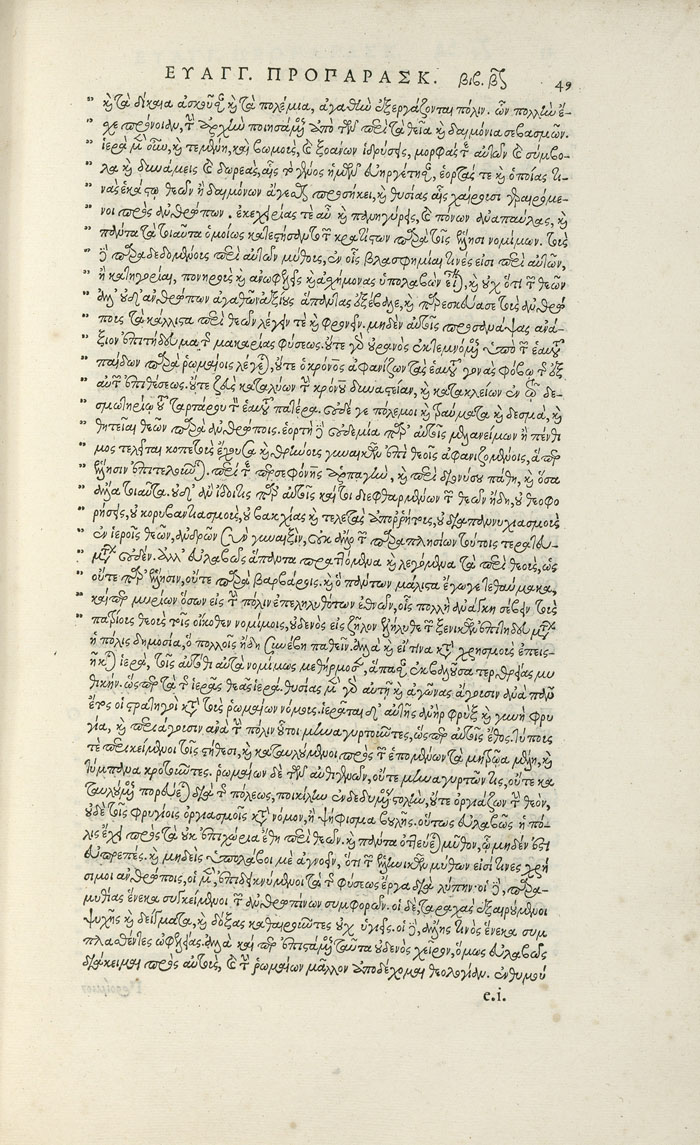 ΕΥΑΓΓ. ΠΡΟΠΑΡΑΣΚ. βιβ. β. 49
καὶ τὰ δίκαια ἀσκοῦσαν καὶ τὰ πολέμια, ἀγαθὴν ἐξεργάζονται πόλιν. ὧν πολλὴν ἔ-
σχε πρόνοιαν, τὴν ἀρχὴν ποιησάμενος ἀπὸ τῶν περὶ τὰ θεῖα καὶ δαιμόνια σεβασμῶν.
ἱερὰ μὲν οὖν, καὶ τεμένη, καὶ βωμοὺς, καὶ ξοάνων ἱδρύσεις, μορφάς τε αὐτῶν καὶ σύμβο-
λα καὶ δυνάμεις καὶ δωρεὰς, αἷς τὸ γένος ἡμῶν εὐηργέτησαν, ἑορτάς τε καὶ ὁποίας τι-
νὰς ἑκάστῳ θεῶν ἢ δαιμόνων ἄγεσθαι προσήκει, καὶ θυσίας αἷς χαίρουσι γεραιρόμε-
νοι πρὸς ἀνθρώπων. ἐκεχειρίας τε αὖ καὶ πανηγύρεις, καὶ πόνων ἀναπαύλας, καὶ
πάντα τὰ τοιαῦτα ὁμοίως κατεστήσαντο τῶν κρατίστων παρὰ τοῖς ἕλλησι νομίμων. τοὺς
δὲ παραδεδομένους περὶ αὐτῶν μύθους, ἐν οἷς βλασφημίαι τινές εἰσι περὶ αὐτῶν,
ἢ κατηγορίαι, πονηροὺς καὶ ἀνωφελεῖς καὶ ἀσχήμονας ὑπολαβὼν εἶναι, καὶ οὐχ ὅτι τῶν θεῶν
ἀλλ' οὐδ' ἀνθρώπων ἀγαθῶν ἀξίους ἅπαντας ἐξέβαλε, καὶ παρεσκεύασε τοὺς ἀνθρώ
πους τὰ κάλλιστα περὶ θεῶν λέγειν τε καὶ φρονεῖν. μηδὲν αὐτοῖς προσάψας ἀνά-
ξιον ἐπιτήδευμα τῆς μακαρίας φύσεως. οὔτε γὰρ οὐρανὸς ἐκτεμνόμενος ὑπὸ τῶν ἑαυτοῦ
παίδων παρὰ ῥωμαίοις λέγεται, οὔτε ὁ κρόνος ἀφανίζων τὰς ἑαυτοῦ γονὰς φόβῳ τῆς ἐξ
αὐτῶν ἐπιθέσεως. οὔτε ζεὺς καταλύων τὴν κρόνου δυναστείαν, καὶ κατακλείων ἐν τῷ δε-
σμωτηρίῳ τοῦ ταρτάρου τὸν ἑαυτοῦ πατέρα. οὐδέ γε πόλεμοι καὶ τραύματα καὶ δεσμὰ, καὶ
θητεῖαι θεῶν παρὰ ἀνθρώποις. ἑορτή τε οὐδεμία παρ' αὐτοῖς μελανείμων ἢ πένθι
μος τελεῖται κοπετοὺς ἔχουσα καὶ θρήνους γυναικῶν ἐπὶ θεοῖς ἀφανιζομένοις, ἃ παρ'
ἕλλησιν ἐπιτελεῖται. περί τε περσεφόνης ἁρπαγὴν, καὶ περὶ διονύσου πάθη, καὶ ὅσα
ἄλλα τοιαῦτα. οὐδ' ἂν ἴδοι τις παρ' αὐτοῖς καίτοι διεφθαρμένων τῶν θεῶν ἤδη, οὐ θεοφο
ρήσεις, οὐ κορυβαντιασμοὺς, οὐ βακχείας καὶ τελετὰς ἀπορρήτους, οὐ διαπαννυχιασμοὺς
ἐν ἱεροῖς θεῶν, ἀνδρῶν σὺν γυναιξὶν, οὐκ ἄλλο τῶν παραπλησίων τούτοις τερατευ-
μάτων οὐδέν. ἀλλ' εὐλαβῶς ἅπαντα πραττόμενα καὶ λεγόμενα τὰ περὶ θεοὺς, ὡς
οὔτε παρ' ἕλλησιν, οὔτε παρὰ βαρβάροις. καὶ ὃ πάντων μάλιστα ἔγωγε τεθαύμακα,
καίπερ μυρίων ὅσων εἰς τὴν πόλιν ἐπεληλυθότων ἐθνῶν, οἷς πολλὴ ἀνάγκη σέβειν τοὺς
πατρίους θεοὺς τοῖς οἴκοθεν νομίμοις, οὐδενὸς εἰς ζῆλον ἐλήλυθε τῶν ξενικῶν ἐπιτηδευμάτων
ἡ πόλις δημοσίᾳ, ὃ πολλοῖς ἤδη συνέβη παθεῖν. ἀλλὰ καὶ εἴ τινα κατὰ χρησμοὺς ἐπεισ-
ήχθη ἱερὰ, τοῖς αὐτόθι αὐτὰ νομίμοις μεθήρμοσεν, ἅπασαν ἐκβαλοῦσα τερθρείας μυ
θικήν. ὥσπερ τὰ τῆς ἱερᾶς θεᾶς ἱερά. θυσίας μὲν γὰρ αὐτῇ καὶ ἀγῶνας ἄγουσιν ἀνὰ πᾶν
ἔτος οἱ στρατηγοὶ κατὰ τοὺς ῥωμαίων νόμους. ἱερᾶται δ' αὐτῆς ἀνὴρ φρὺξ καὶ γυνὴ φρυ
γία, καὶ περιάγουσιν ἀνὰ τὴν πόλιν οὗτοι μηναγυρτοῦντες, ὥσπερ αὐτοῖς ἔθος. τύπους
τε περικείμενοι τοῖς στήθεσι, καὶ καταυλούμενοι πρὸς τῶν ἑπομένων τὰ μητρῷα μέλη, καὶ
τύμπανα κροτοῦντες. ῥωμαίων δὲ τῶν αὐθιγενῶν, οὔτε μηναγυρτῶν τις, οὔτε κα
ταυλούμενος πορεύεται διὰ τῆς πόλεως, ποικίλην ἐνδεδυμένος στολὴν, οὔτε ὀργιάζων τὴν θεὸν,
οὐδὲ τοῖς φρυγίοις ὀργιασμοῖς κατὰ νόμον, ἢ ψήφισμα βουλῆς. οὕτως εὐλαβῶς ἡ πό-
λις ἔχει πρὸς τὰ οὐκ ἐπιχώρια ἔθη περὶ θεῶν. καὶ πάντα ὀττεύεται μῦθον, ᾧ μηδὲν ἔστι
εὐπρεπές. καὶ μηδεὶς ὑπολάβοι με ἀγνοεῖν, ὅτι τῶν ἑλληνικῶν μύθων εἰσί τινες χρή
σιμοι ἀνθρώποις, οἱ μὲν, ἐπιδεικνύμενοι τὰ τῆς φύσεως ἔργα διὰ λύπην. οἱ δὲ, παρα-
μυθίας ἕνεκα συγκείμενοι τῶν ἀνθρωπίνων συμφορῶν. οἱ δὲ, ταραχὰς ἐξαιρούμενοι
ψυχῆς καὶ δείγματα, καὶ δόξας καθαιροῦντες οὐχ ὑγιεῖς. οἱ δὲ, ἄλλης τινὸς ἕνεκα συμ
πλασθέντες ὠφελείας. ἀλλὰ καίπερ ἐπιστάμενος ταῦτα οὐδενὸς χεῖρον, ὅμως εὐλαβῶς
διάκειμαι πρὸς αὐτοὺς, καὶ τὴν ῥωμαίων μᾶλλον ἀποδέχομαι θεολογίαν. ἐνθυμού
e.i.